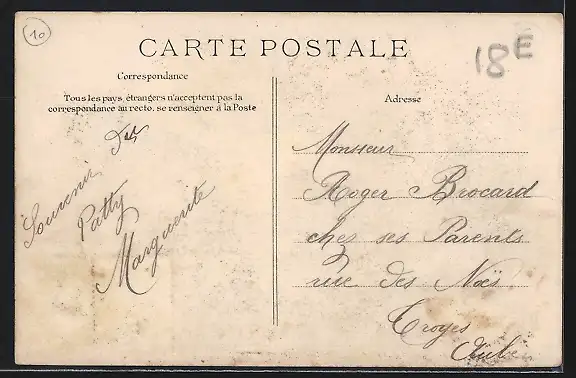 10
18E
CARTE POSTALE
Correspondance
Tous les pays étrangers n'acceptent pas la
correspondance au recto, se renseigner à la Poste
Adresse
Souvenir
Patty
Marguerite
Monsieur
Roger Brocard
chez ses Parents
rue des Noës
Troyes
Aube